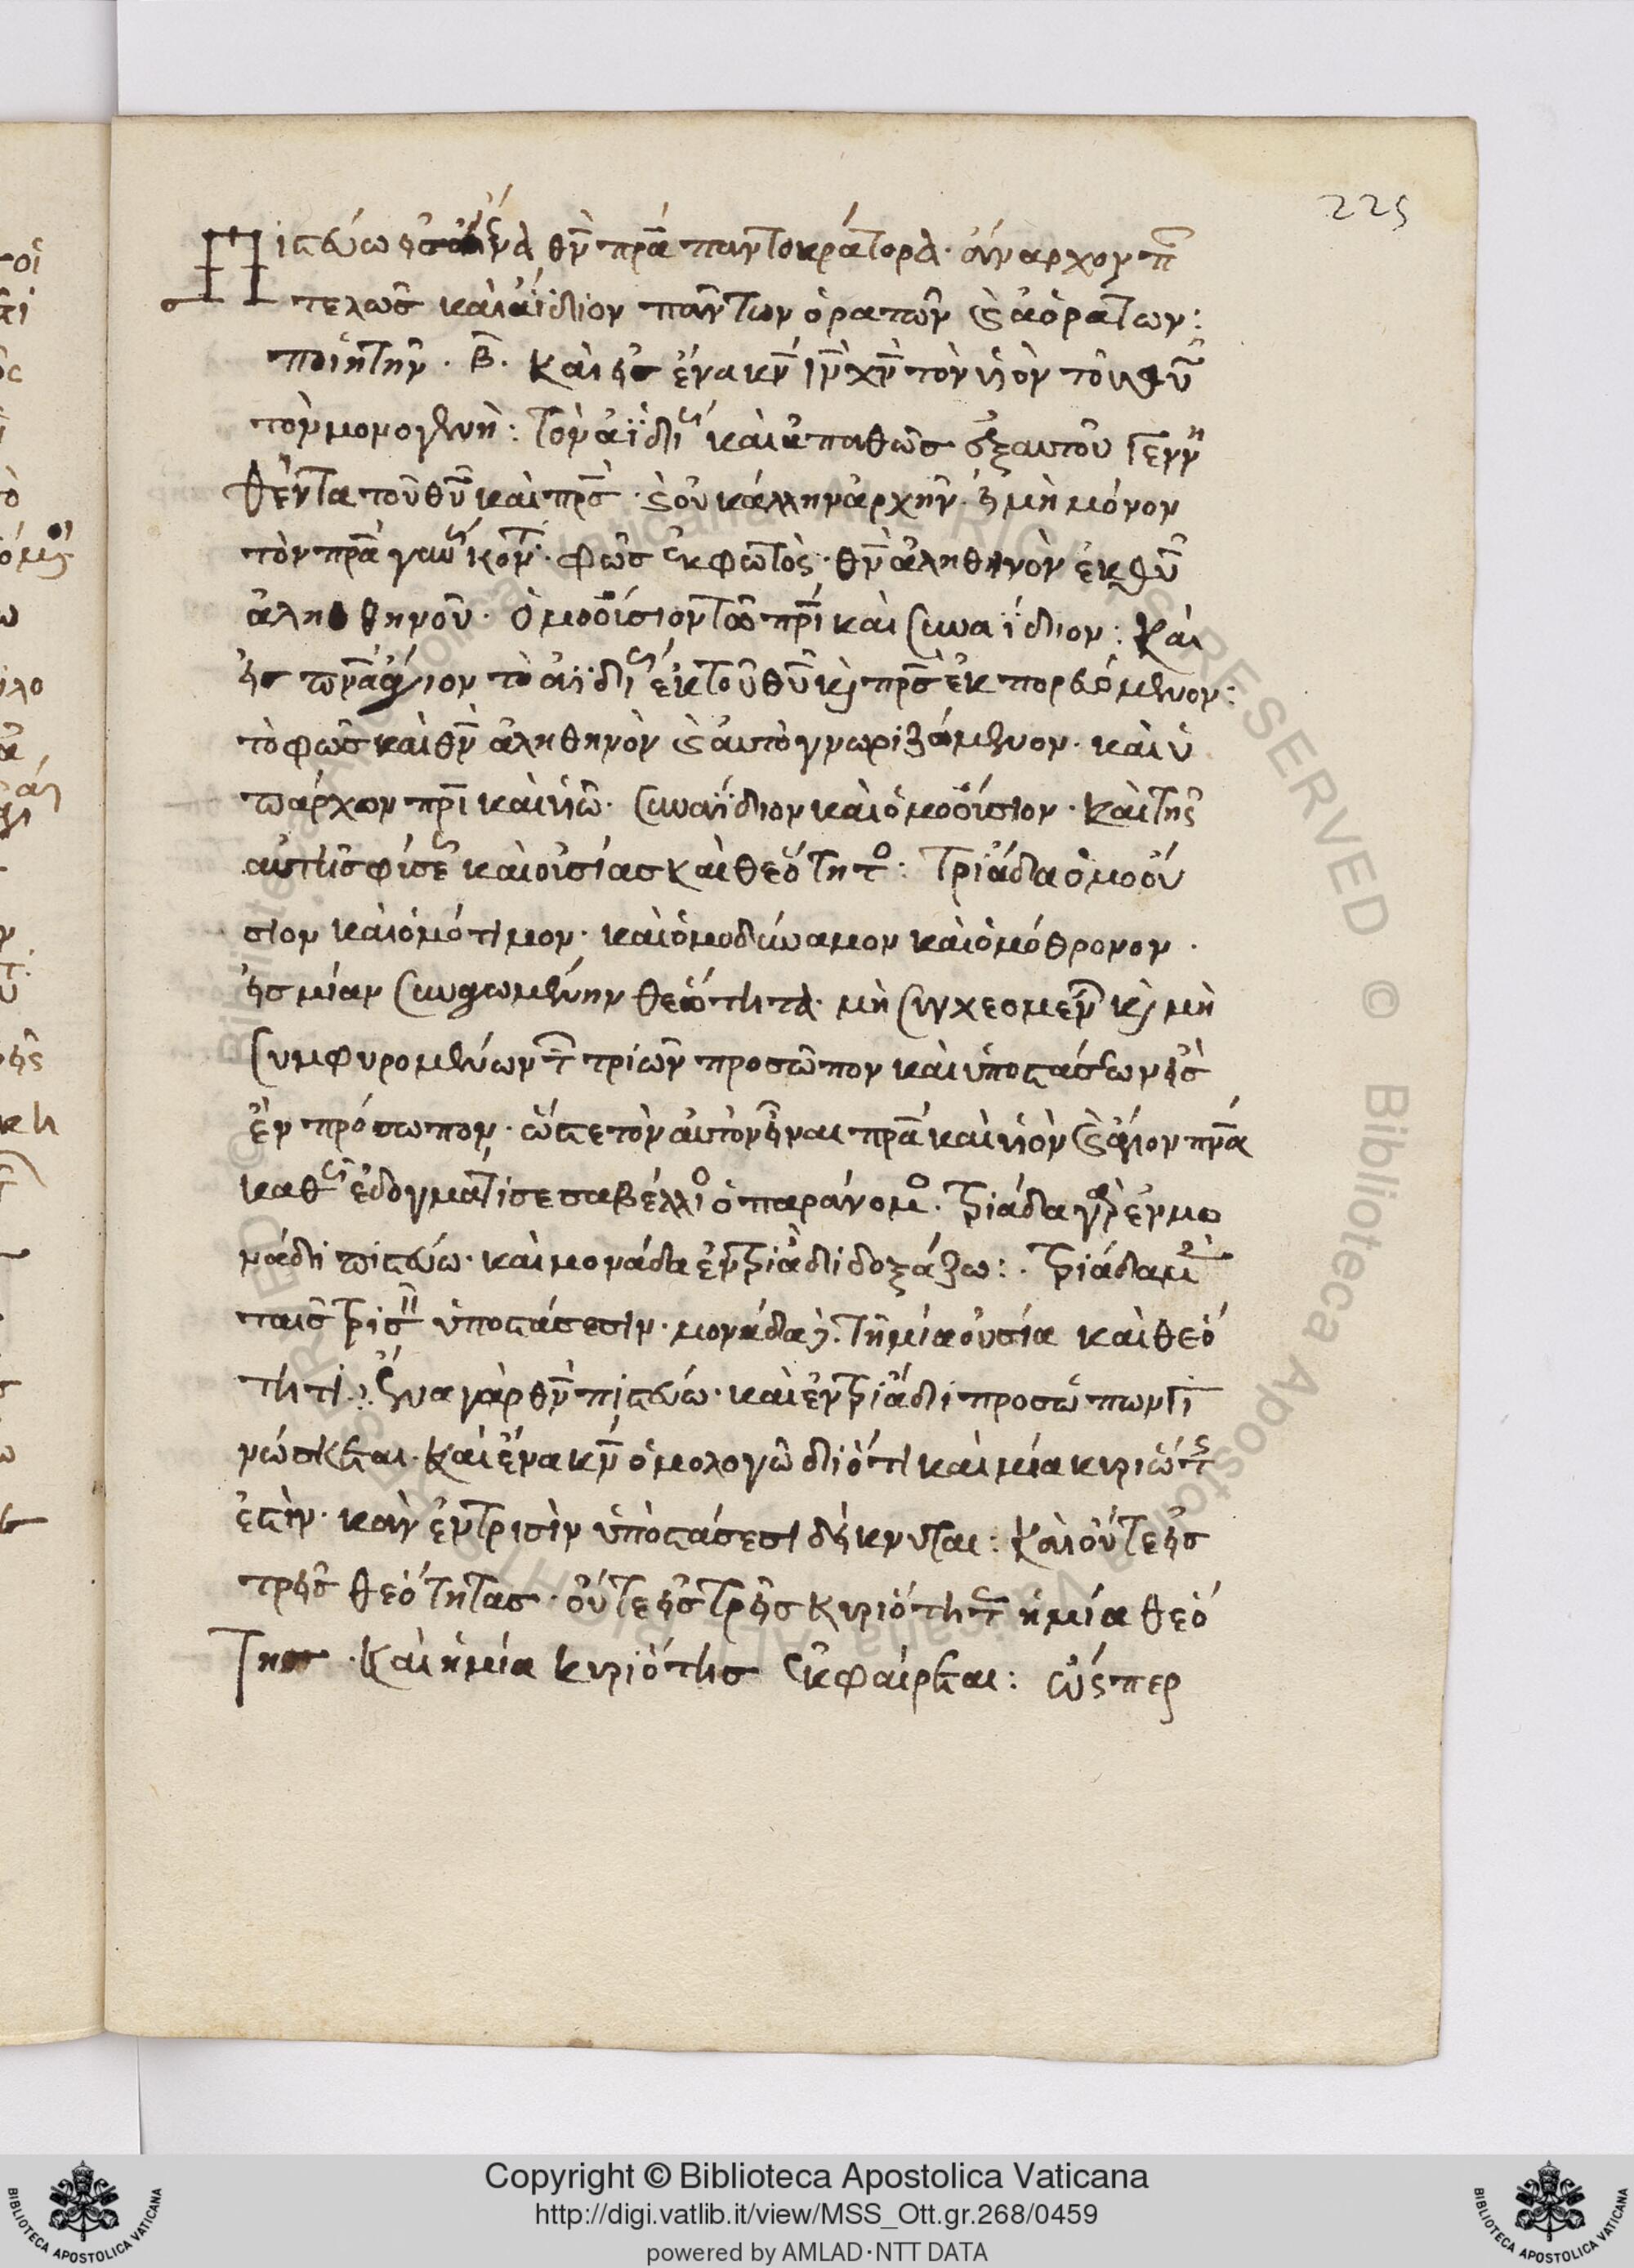 225
Πιστεύω εἰς ἕνα θν πρα παντοκράτορα· ἄναρχον π
τελῶς καὶ ἀΐδιον πάντων ὁρατῶν καὶ ἀοράτων:
ποιητήν. β. καὶ εἰς ἕνα κν ιν χν τὸν υἱὸν τοῦ θυ
τὸν μονογενῆ: τὸν ἀϊδί καὶ ἀπαθῶς ἐξ αυτοῦ γενη
θέντα τοῦ θυ καὶ πρς· καὶ οὐκ άλλην ἀρχὴν εἰ μὴ μόνον
τὸν πρα γινώσκοντ· φῶς ἐκ φωτὸς· θν ἀληθηνὸν ἐκ θυ
ἀληθηνοῦ· ὁμοούσιον τῶ πρι καὶ συναΐδιον: Καὶ
εἰς πνα ἅγιον τὸ ἀϊδί ἐκ τοῦ θυ καὶ πρς ἐκπορευόμενον:
τὸ φῶς καὶ θν ἀληθηνὸν καὶ αυτὸ γνωριζόμενον· καὶ ὑ
πάρχον πρι καὶ υἱῶ· συναΐδιον καὶ ὁμοούσιον· καὶ τῆς
αὐτῆς φύσε καὶ οὐσίας καὶ θεότητο: Τριάδα ὁμοού
σιον καὶ ὁμότιμον· καὶ ὁμοδύναμον καὶ ὁμόθρονον·
εἰς μίαν συναγομένην θεότητα· μὴ συγχεομεν καὶ μὴ
συμφυρομένων τ τριῶν προσῶπον καὶ ὑποστάσεων εἰς
ἓν πρόσωπον· ὥστε τὸν αὐτὸν εἶναι πρα καὶ υἱὸν καὶ ἅγιον πνα
καθῶς ἐδογμάτισε σαβέλλιο ὁ παράνομο. Τριάδα γὰρ ἐν μο
νάδι πιστεύω· καὶ μονάδα ἐν τριάδι δοξάζω:· Τριάδα μ
ταις τρισὶ ὑποστάσεσιν· μονάδα δὲ τῆ μία οὐσία καὶ θεό
τητι: ἕνα γὰρ θν πιστεύω· καὶ ἐν τριάδι προσώπων γι
νώσκεται· καὶ ἕνα κν ὁμολογῶ διότι καὶ μία κυριότ
ἐστὶν· κὰν ἐν τρισὶν ὑποστάσεσι δείκνυται: Καὶ οὔτε εἰς
τρεῖς θεότητας· οὔτε εἰς τρεῖς κυριότητ ἡ μία θεό
της· καὶ ἡ μία κυριότης ἐκφαίρεται: ὥσπερ
Copyright © Biblioteca Apostolica Vaticana
http://digi.vatlib.it/view/MSS_Ott.gr.268/0459
powered by AMLAD·NTT DATA